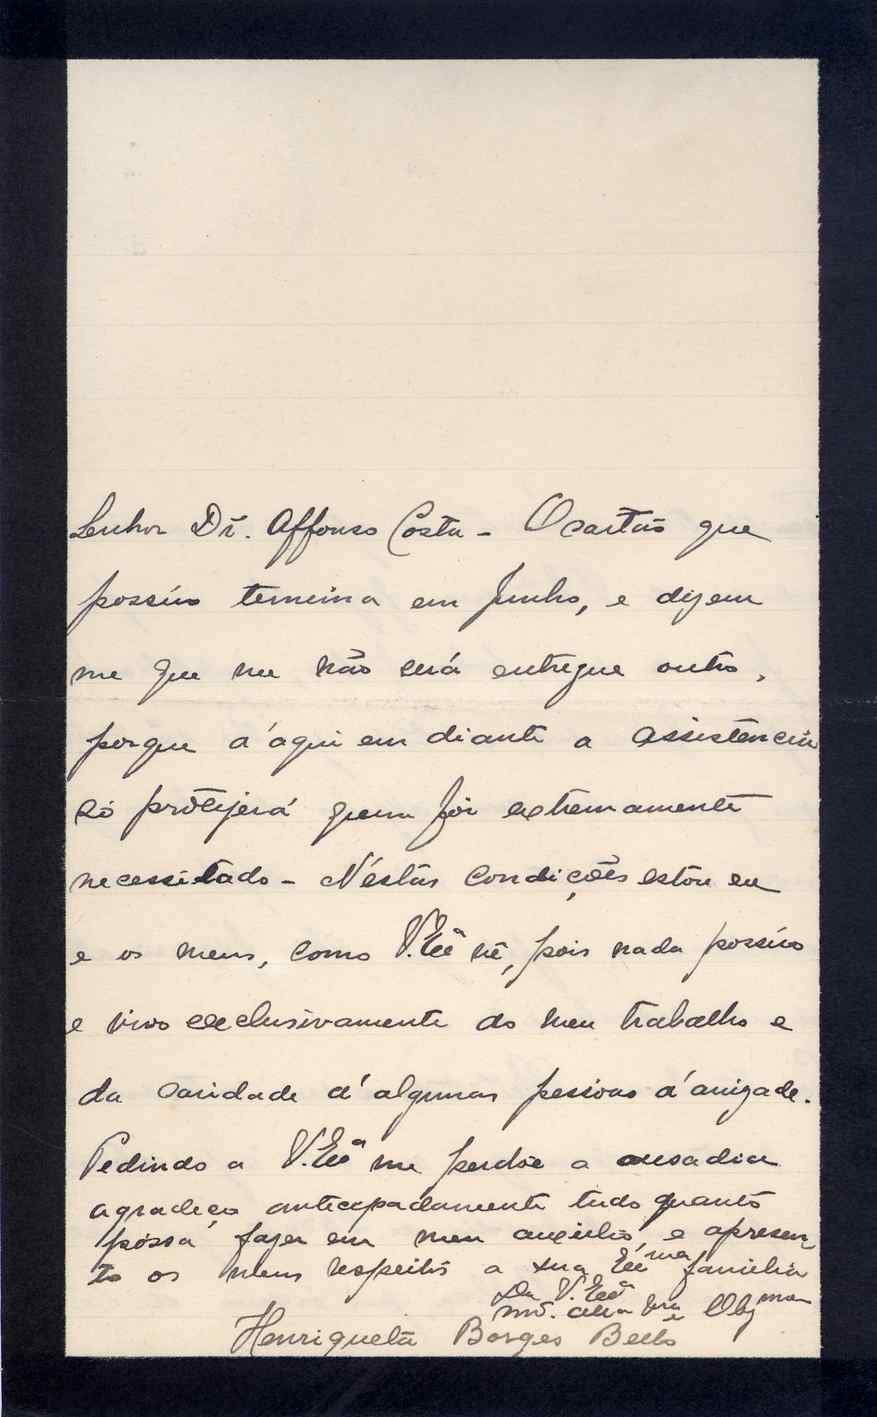 Senhor Dr. Affonso Costa - O cartão que
possúo termina em Junho, e dizem
me que me não será entregue outro,
porque d'aqui em diante a assistencia
só protijerá quem fôr extremamente
necessitado - N'estas condições estou eu
e os meus, como V. Exª vê, pois nada possúo
e vivo exclusivamente do meu trabalho e
da caridade d'algumas pessoas d'amizade.
Pedindo a V. Exª me perdôe a ousadia
agradeço antecipadamente tudo quanto
póssa fazer em meu auxilio, e apresen-
to os meus respeitos a sua Exma familia
De V. Exª
mto. Obgma
Henriqueta Borges Bello